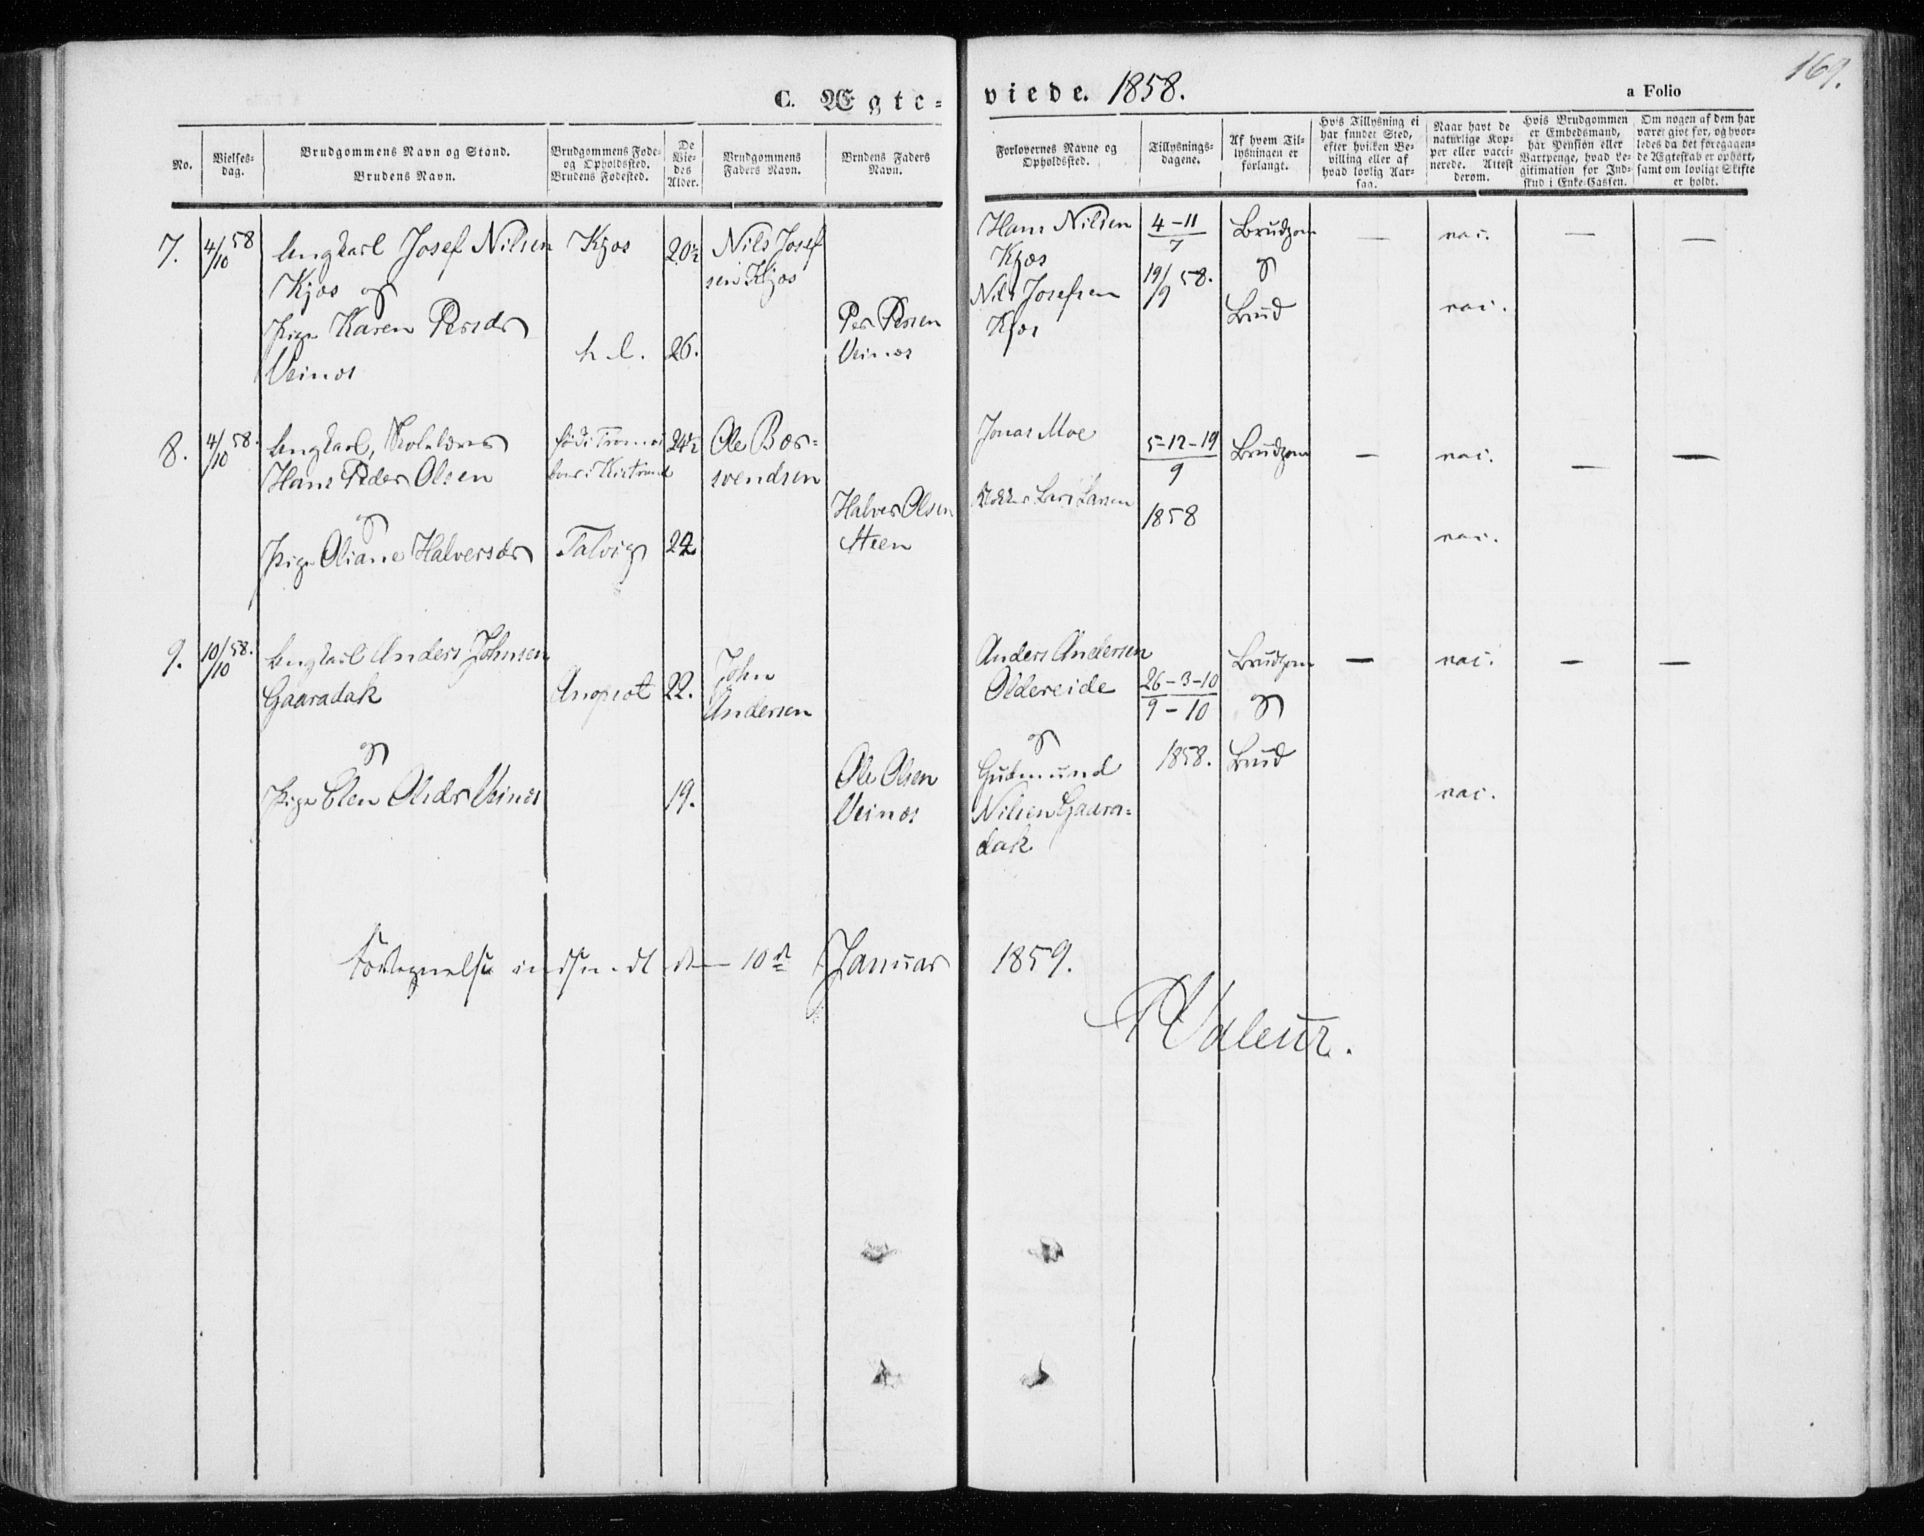 169.
C. Ægte=
viede. 1858.
a Folio
No.
Vielses-
dag.
Brudgommens Navn og Stand.
Brudens Navn.
Brudgommens Føde-
og Opholdssted.
Brudens Fødested.
De
Vie-
des
Alder.
Brudgommens
Faders Navn.
Brudens Faders
Navn.
Forlovernes Navne og
Opholdssted.
Tillysnings-
dagene.
Af hvem Til-
lysningen er
forlangt.
Hvis Tillysning ei
har fundet Sted,
efter hvilken Be-
villing eller af
hvad lovlig Aar-
sag.
Naar havt de
naturlige Kop-
per eller vacci-
nerede. Attest
derom.
Hvis Brudgommen
er Embedsmand,
har Pension eller
Vartpenge, hvad Le-
gitimation for Ind-
skud i Enke-Cassen.
Om nogen af dem har
været givt før, og hvor-
ledes da det foregagen-
de Ægteskab er ophørt,
samt om lovligt Skifte
er holdt.
7. 4/10 58 Ungkarl Josef Nilsen
Kjæs og
Pige Karen Persdr
Veinæs
Kjæs
h l.
20½
26.
Nils Josef
sen Kjæs
Per Persen
Veinæs
Hans Nilsen
Kjæs
Nils Josefsen
Kjæs
4-11
7
19/9 58.
Brudgom
og
Brud
—
vac.
vac.
—
—
8. 4/10 58. Ungkarl, Skolelærer
Hans Peder Olsen
og
Pige Oliane Halversdr
født i Tromsø
boer i Kistrand
Talvig
24½
24
Ole Bor=
svendsen
Halver Olsen
Steen
Jonas Moe
Lars Larsen
5-12-19
9
1858
Brudgom
—
vac.
vac.
—
—
9. 10/10 58. Ungkarl Anders Johnsen
Gaaradak
og
Pige Elen Olsdr Veinæs
22.
19.
John
Andersen
Ole Olsen
Veinæs
Anders Andersen
Oldereide
og
Gudmund
Nilsen Gaara=
dak
26-3-10
9-10
1858.
Brudgom
og
Brud
—
vac.
vac.
—
—
Fortegnelse indsendt d 10de Januar 1859.
Valeur.